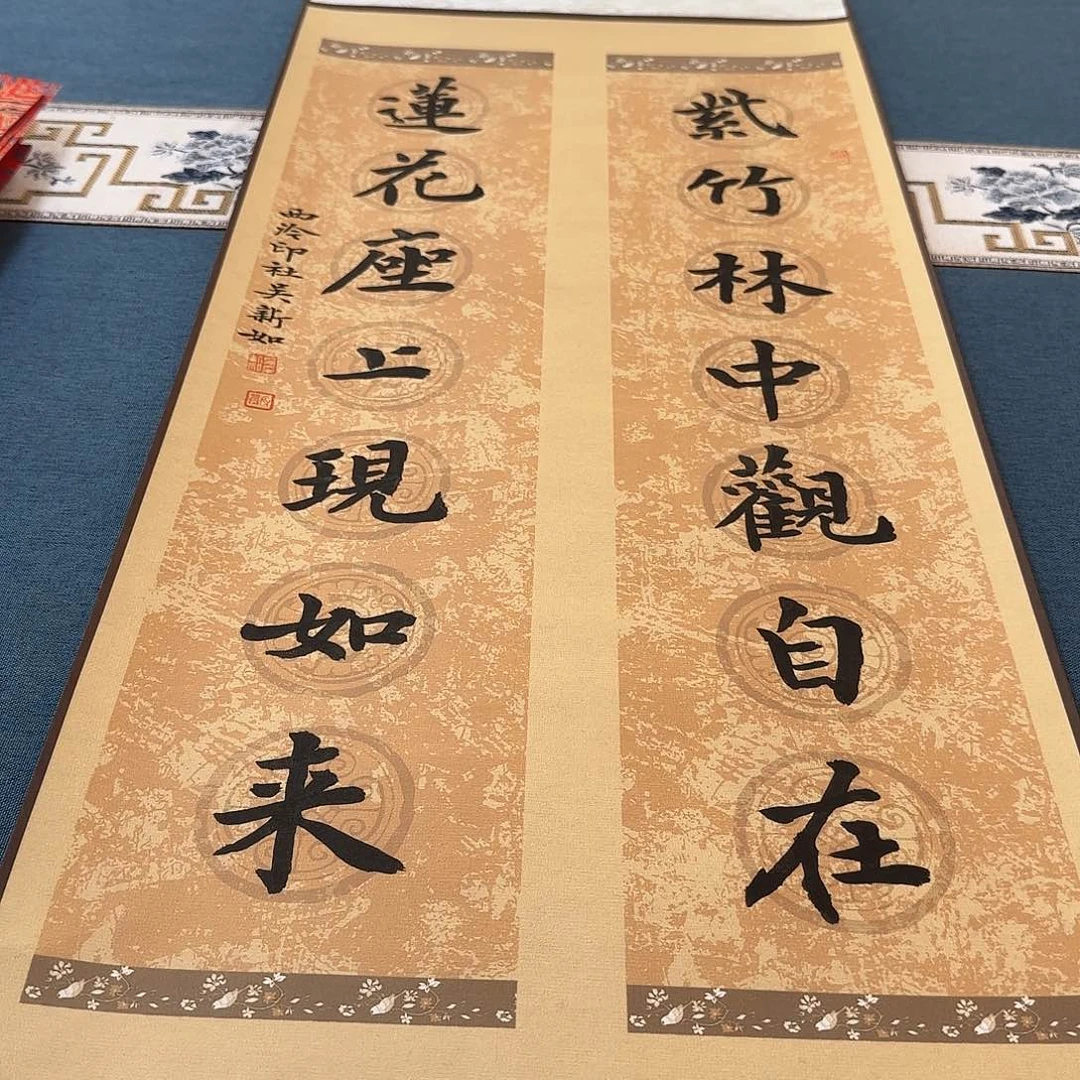 紫竹林中觀自在
蓮花座上現如来
西泠印社吴新如